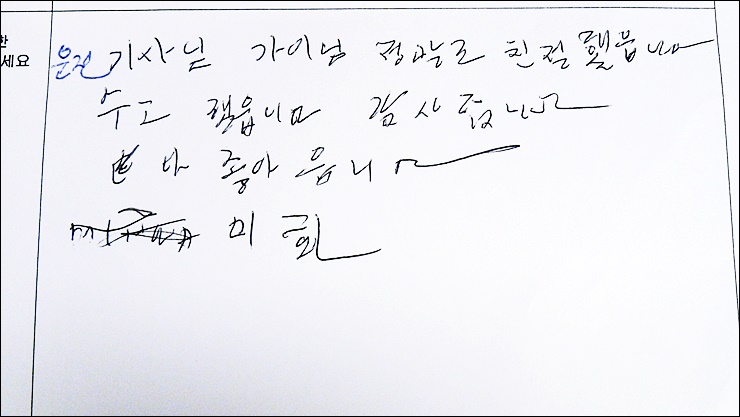 한
세요
운전 기사님 가이님 정말로 친절 했읍니다
수고 했읍니다 감사 합니다
좋아 읍니다
미